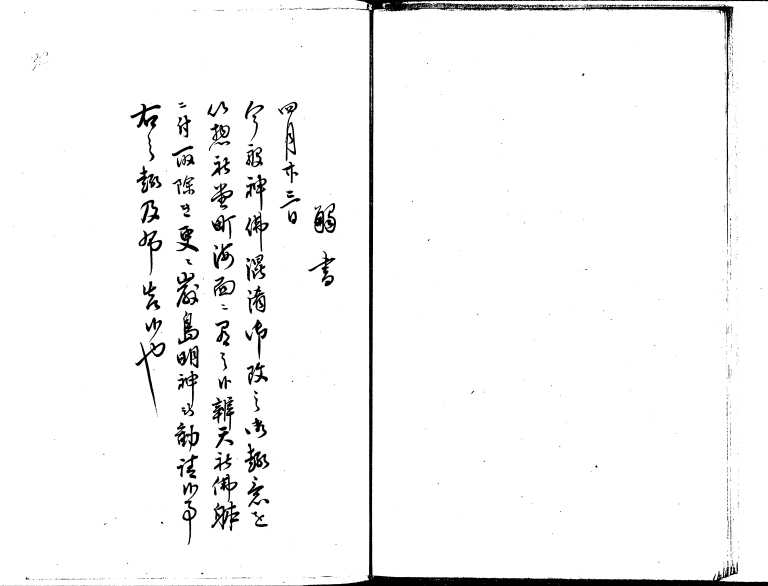 觸書
四月廿三日
今般神佛混淆御改之御趣意を
以惣社堂町海面ニ有之候辨天社佛躰
ニ付取除き更ニ嚴島明神与勧請候事
右之趣及布告候也